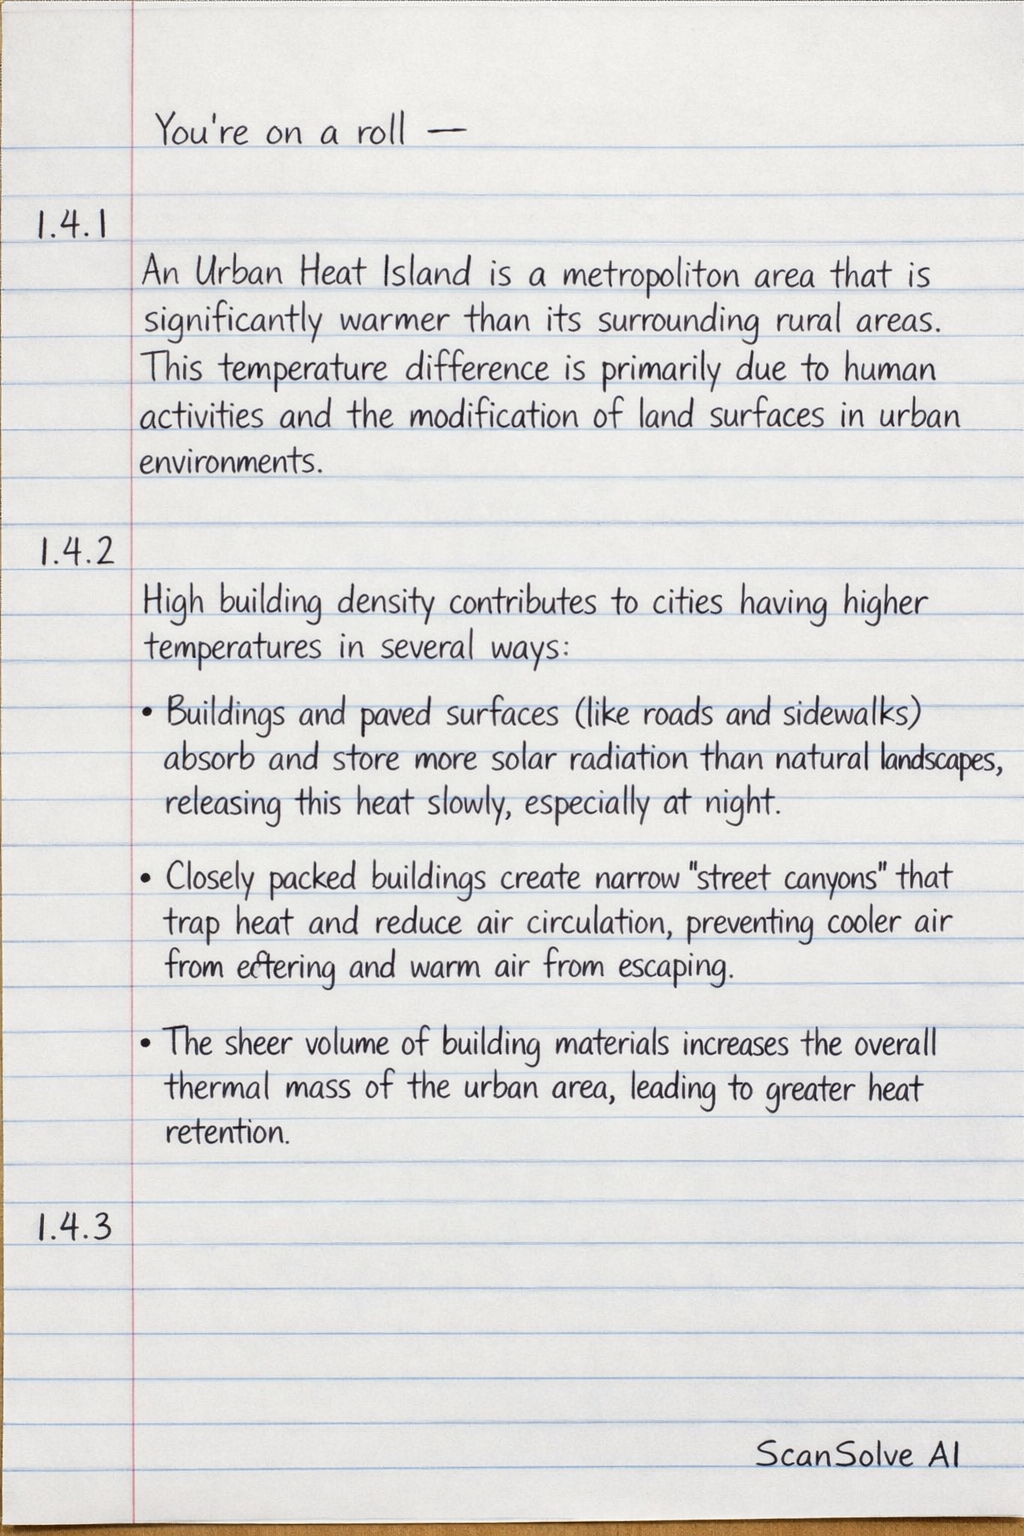 You're on a roll —
1.4.1
An Urban Heat Island is a metropoliton area that is
significantly warmer than its surrounding rural areas.
This temperature difference is primarily due to human
activities and the modification of land surfaces in urban
environments.
1.4.2
High building density contributes to cities having higher
temperatures in several ways:
• Buildings and paved surfaces (like roads and sidewalks)
absorb and store more solar radiation than natural landscapes,
releasing this heat slowly, especially at night.
• Closely packed buildings create narrow "street canyons" that
trap heat and reduce air circulation, preventing cooler air
from and warm air from escaping.
• The sheer volume of building materials increases the overall
thermal mass of the urban area, leading to greater heat
retention.
1.4.3
ScanSolve AI